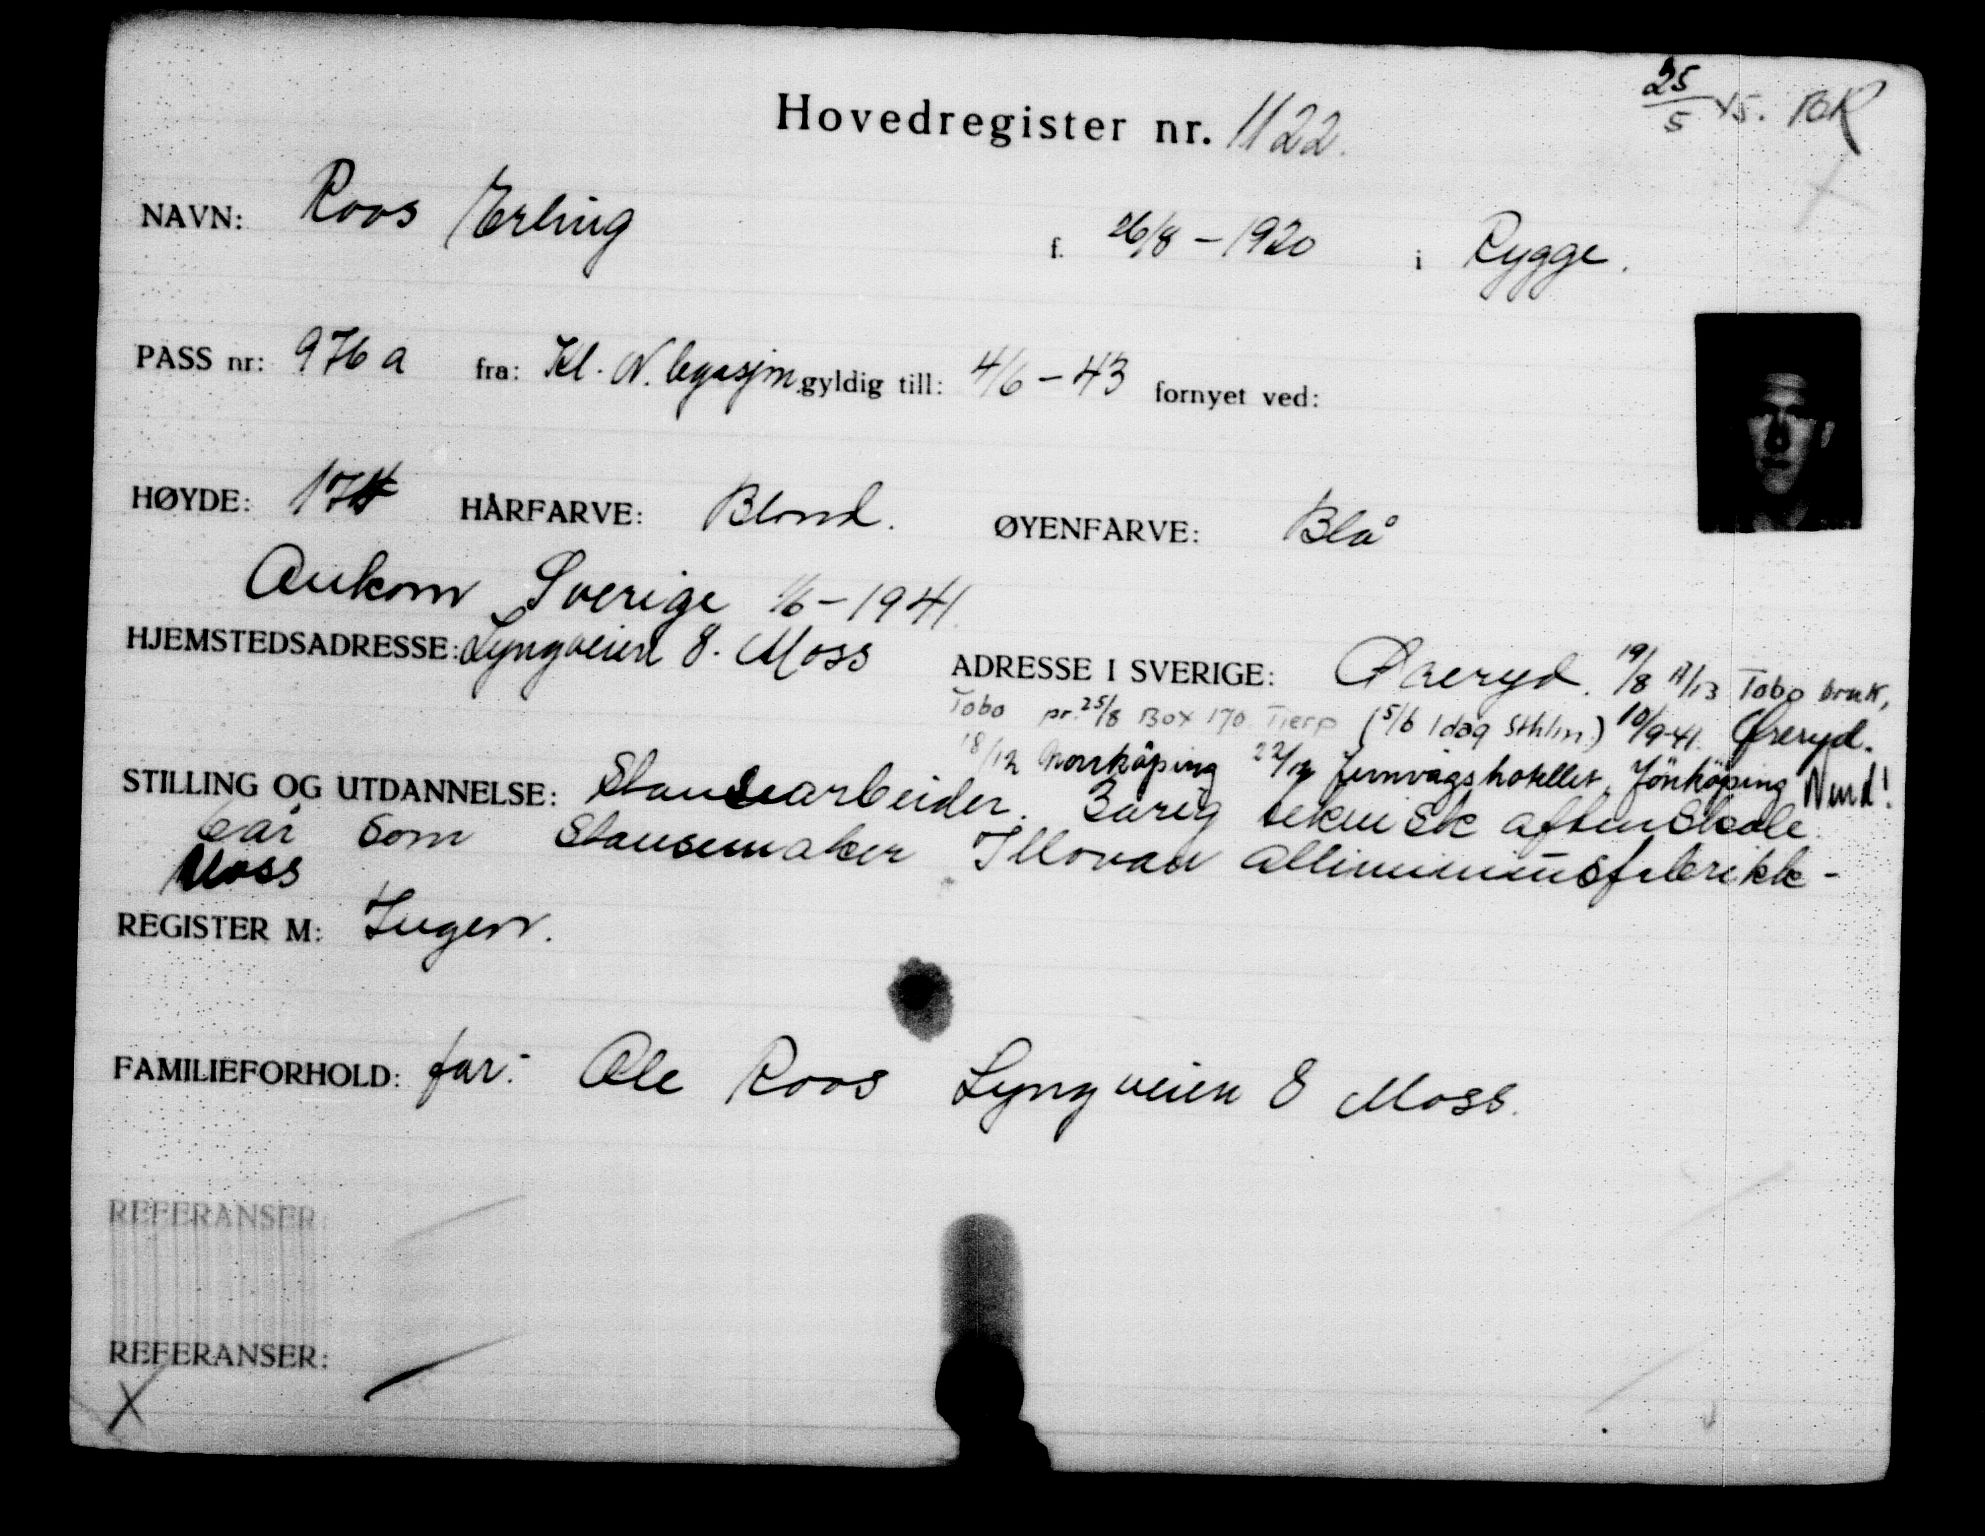 25/5 45. BR
Hovedregister nr. 1122.
NAVN: Roos Erling f. 26/8 - 1920 i Rygge.
PASS nr: 976 a fra: Kl. N. legasjon gyldig till: 4/6 - 43 fornyet ved:
HØYDE: 174 HÅRFARVE: Blond. ØYENFARVE: Blå
Ankom Sverige 1/6 - 1941.
HJEMSTEDSADRESSE: Lyngveien 8. Moss ADRESSE I SVERIGE: Øreryd. 19/8 Tobo bruk,
Tobo pr. 25/8 Box 170 Tierp (5/6 1 dag Sthlm.) 10/9-41. Øreryd.
18/12 Norrköping 22/12 Jernvägshotellet, Jönköping
STILLING OG UTDANNELSE: Stansearbeider. 3årig teknisk aftenskole.
6 år som Stansemaker Illovan alliminiumsfabrikk -
Moss
REGISTER M: Ingen.
FAMILIEFORHOLD: far: Ole Roos Lyngveien 8 Moss.
REFERANSER:
REFERANSER: